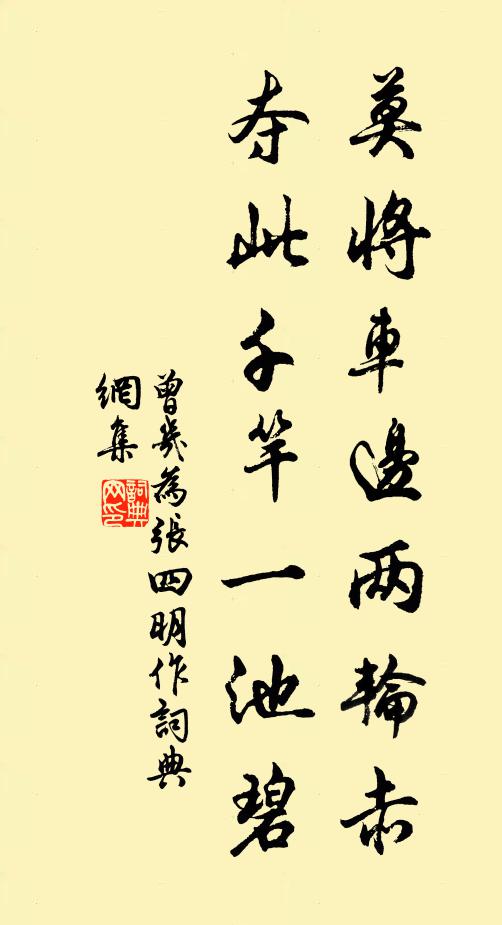 莫將車邊两輪赤
夺此千竿一池碧
曾幾為張四明作詞典
網集
詞典
网印